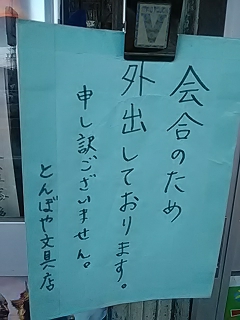 会合のため
外出しております。
申し訳ございません。
とんぼや文具店